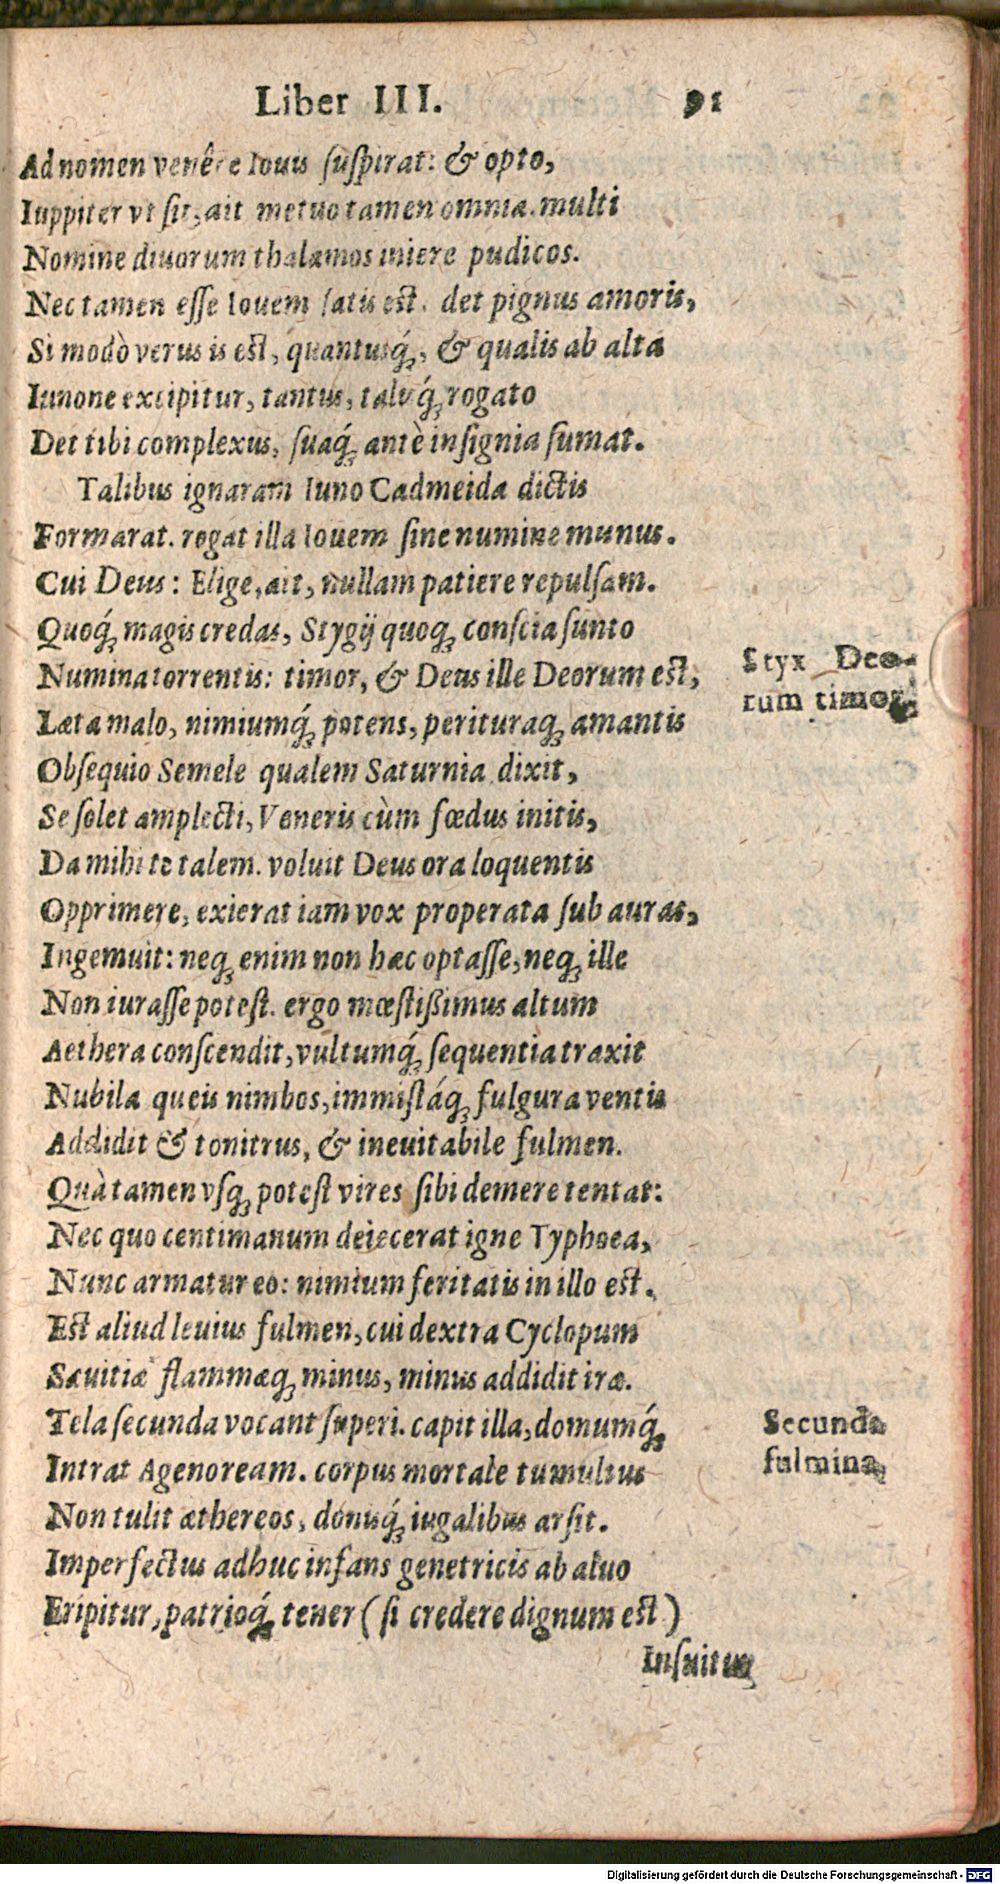 Liber III. 91
Ad nomen venêre Iouis ſuſpirat: & opto,
Iuppiter vt ſit, ait metuo tamen omnia. multi
Nomine diuorum thalamos iniere pudicos.
Nec tamen eſſe Iouem ſatis est. det pignus amoris,
Si modò verus is est, quantusq́, & qualis ab alta
Iunone excipitur, tantus, talisq́ rogato
Det tibi complexus, ſuaq́ antè inſignia ſumat.
Talibus ignaram Iuno Cadmeida dictis
Formarat. rogat illa Iouem ſine numine munus.
Cui Deus: Elige, ait, nullam patiere repulſam.
Quoq́ magis credas, Stygij quoq; conſcia ſunto
Numina torrentis: timor, & Deus ille Deorum est,
Læta malo, nimiumq́ potens, perituraq; amantis
Obſequio Semele qualem Saturnia dixit,
Se ſolet amplecti, Veneris cùm fœdus initis,
Da mihi te talem. voluit Deus ora loquentis
Opprimere, exierat iam vox properata ſub auras,
Ingemuit: neq; enim non hæc optaſſe, neq; ille
Non iuraſſe potest. ergo mœstißimus altum
Aethera conſcendit, vultumq́ ſequentia traxit
Nubila queis nimbos, immistáq; fulgura ventis
Addidit & tonitrus, & ineuitabile fulmen.
Quà tamen vſq; potest vires ſibi demere tentat:
Nec quo centimanum deiecerat igne Typhoea,
Nunc armatur eo: nimium feritatis in illo est.
Est aliud leuius fulmen, cui dextra Cyclopum
Sæuitiæ flammæq; minus, minus addidit iræ.
Tela ſecunda vocant ſuperi. capit illa, domumq́
Intrat Agenoream. corpus mortale tumultus
Non tulit æthereos, donisq́ iugalibus arſit.
Imperfectus adhuc infans genetricis ab aluo
Eripitur, patrioq́ tener (ſi credere dignum est)
Inſuitur
Styx Deo-
rum timor.
Secunda
fulmina.
Digitalisierung gefördert durch die Deutsche Forschungsgemeinschaft - DFG